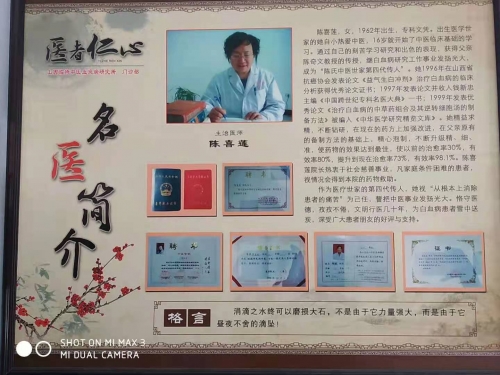 医者仁心
名医简介
主治医师
陈喜莲
陈喜莲，女，1962年出生，专科文凭，出生医学世
家的她自小热爱中医，16岁就开始了中医临床基础的学
习。通过自己的刻苦学习研究和出色的表现，获得父亲
陈奇文教授的传授，继白血病研究工作事业发扬光大，
成为“陈氏中医世家第四代传人”。她1996年在山西省
抗癌协会发表论文《益气生白丹秋》治疗白血病的临床
分析获得优秀论文证书；1997年发表论文并收入钱新忠
主编《中国跨世纪专科名医大典》一书；1999年发表优
秀论文《治疗白血病的中草药组合及其逆转健胞汤的制
备方法》被编入《中华医学研究精览文库》。她精益求
精，不断钻研，在现在的药方上加强改进，在父亲原有
的备制方法的基础上，精心泡制，不断升级、精、细、
准，使药物的效果达到最佳，使以前的治愈率30%，有
效率80%，提升到现在治愈率73%，有效率98.1%。陈喜
莲院长热衷于社会慈善事业，凡家庭条件困难的患者，
视情况会得到本院的药物救助。
作为医疗世家的第四代传人，她视“从根本上消除
患者的痛苦”为己任，誓把中医事业发扬光大。恪守医
德，孜孜不倦；文明行医几十年，为白血病患者雪中送
炭，深受广大患者朋友的好评与支持。
格言
涓滴之水终可以磨损大石，不是由于它力量强大，而是由于它
昼夜不舍的滴坠！
SHOT ON MI MAX 3
MI DUAL CAMERA